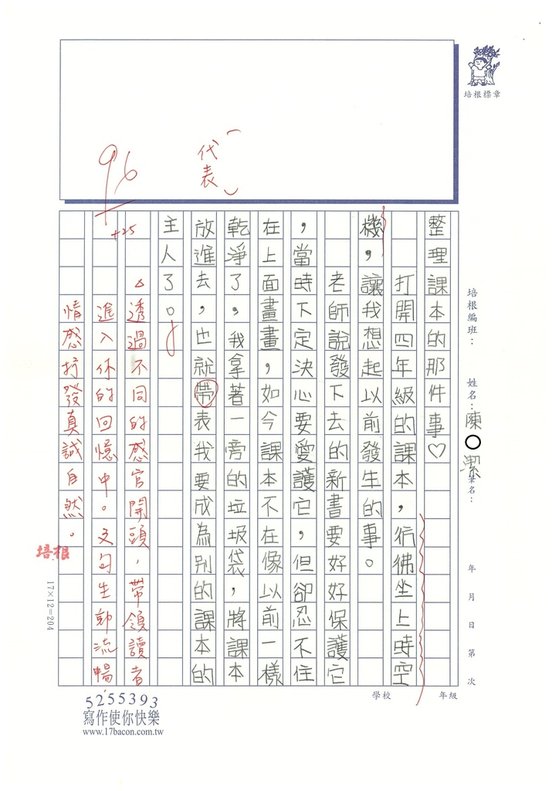 培根標章
培根編班：
姓名：陳 潔
筆名：
年 月 日 第 次
整理課本的那件事♡
打開四年級的課本，彷彿坐上時空
機，讓我想起以前發生的事。
老師說發下去的新書要好好保護它
，當時下定決心要愛護它，但卻忍不住
在上面畫畫，如今課本不在像以前一樣
乾淨了。我拿著一旁的垃圾袋，將課本
放進去，也就帶表我要成為別的課本的
主人了。
「代表」
96
+25
△透過不同的感官開頭，帶領讀者
進入你的回憶中。文句生動流暢
情感抒發真誠自然。
培根
17×12=204
學校
年級
5255393
寫作使你快樂
www.17bacon.com.tw